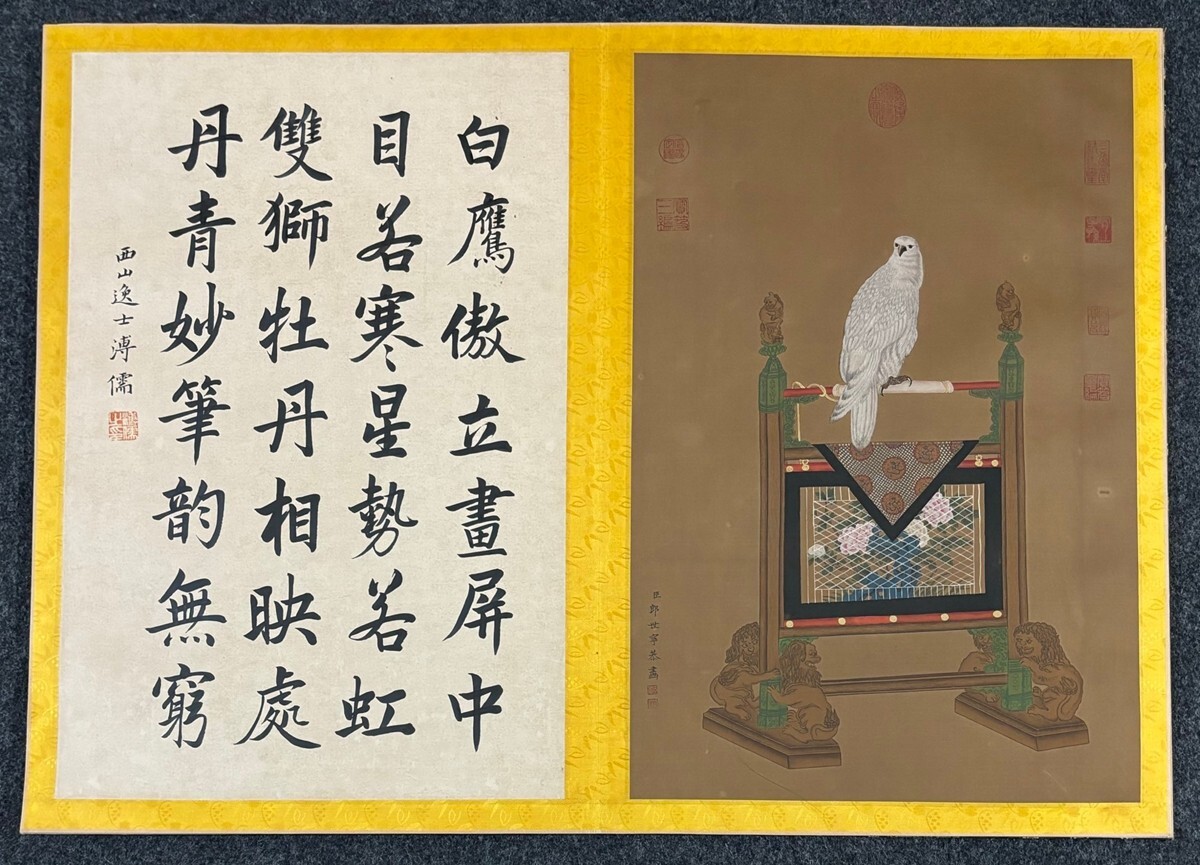 白鷹傲立畫屏中
目若寒星勢若虹
雙獅牡丹相映處
丹青妙筆韵無窮
西山逸士溥儒
臣郎世寧恭畫